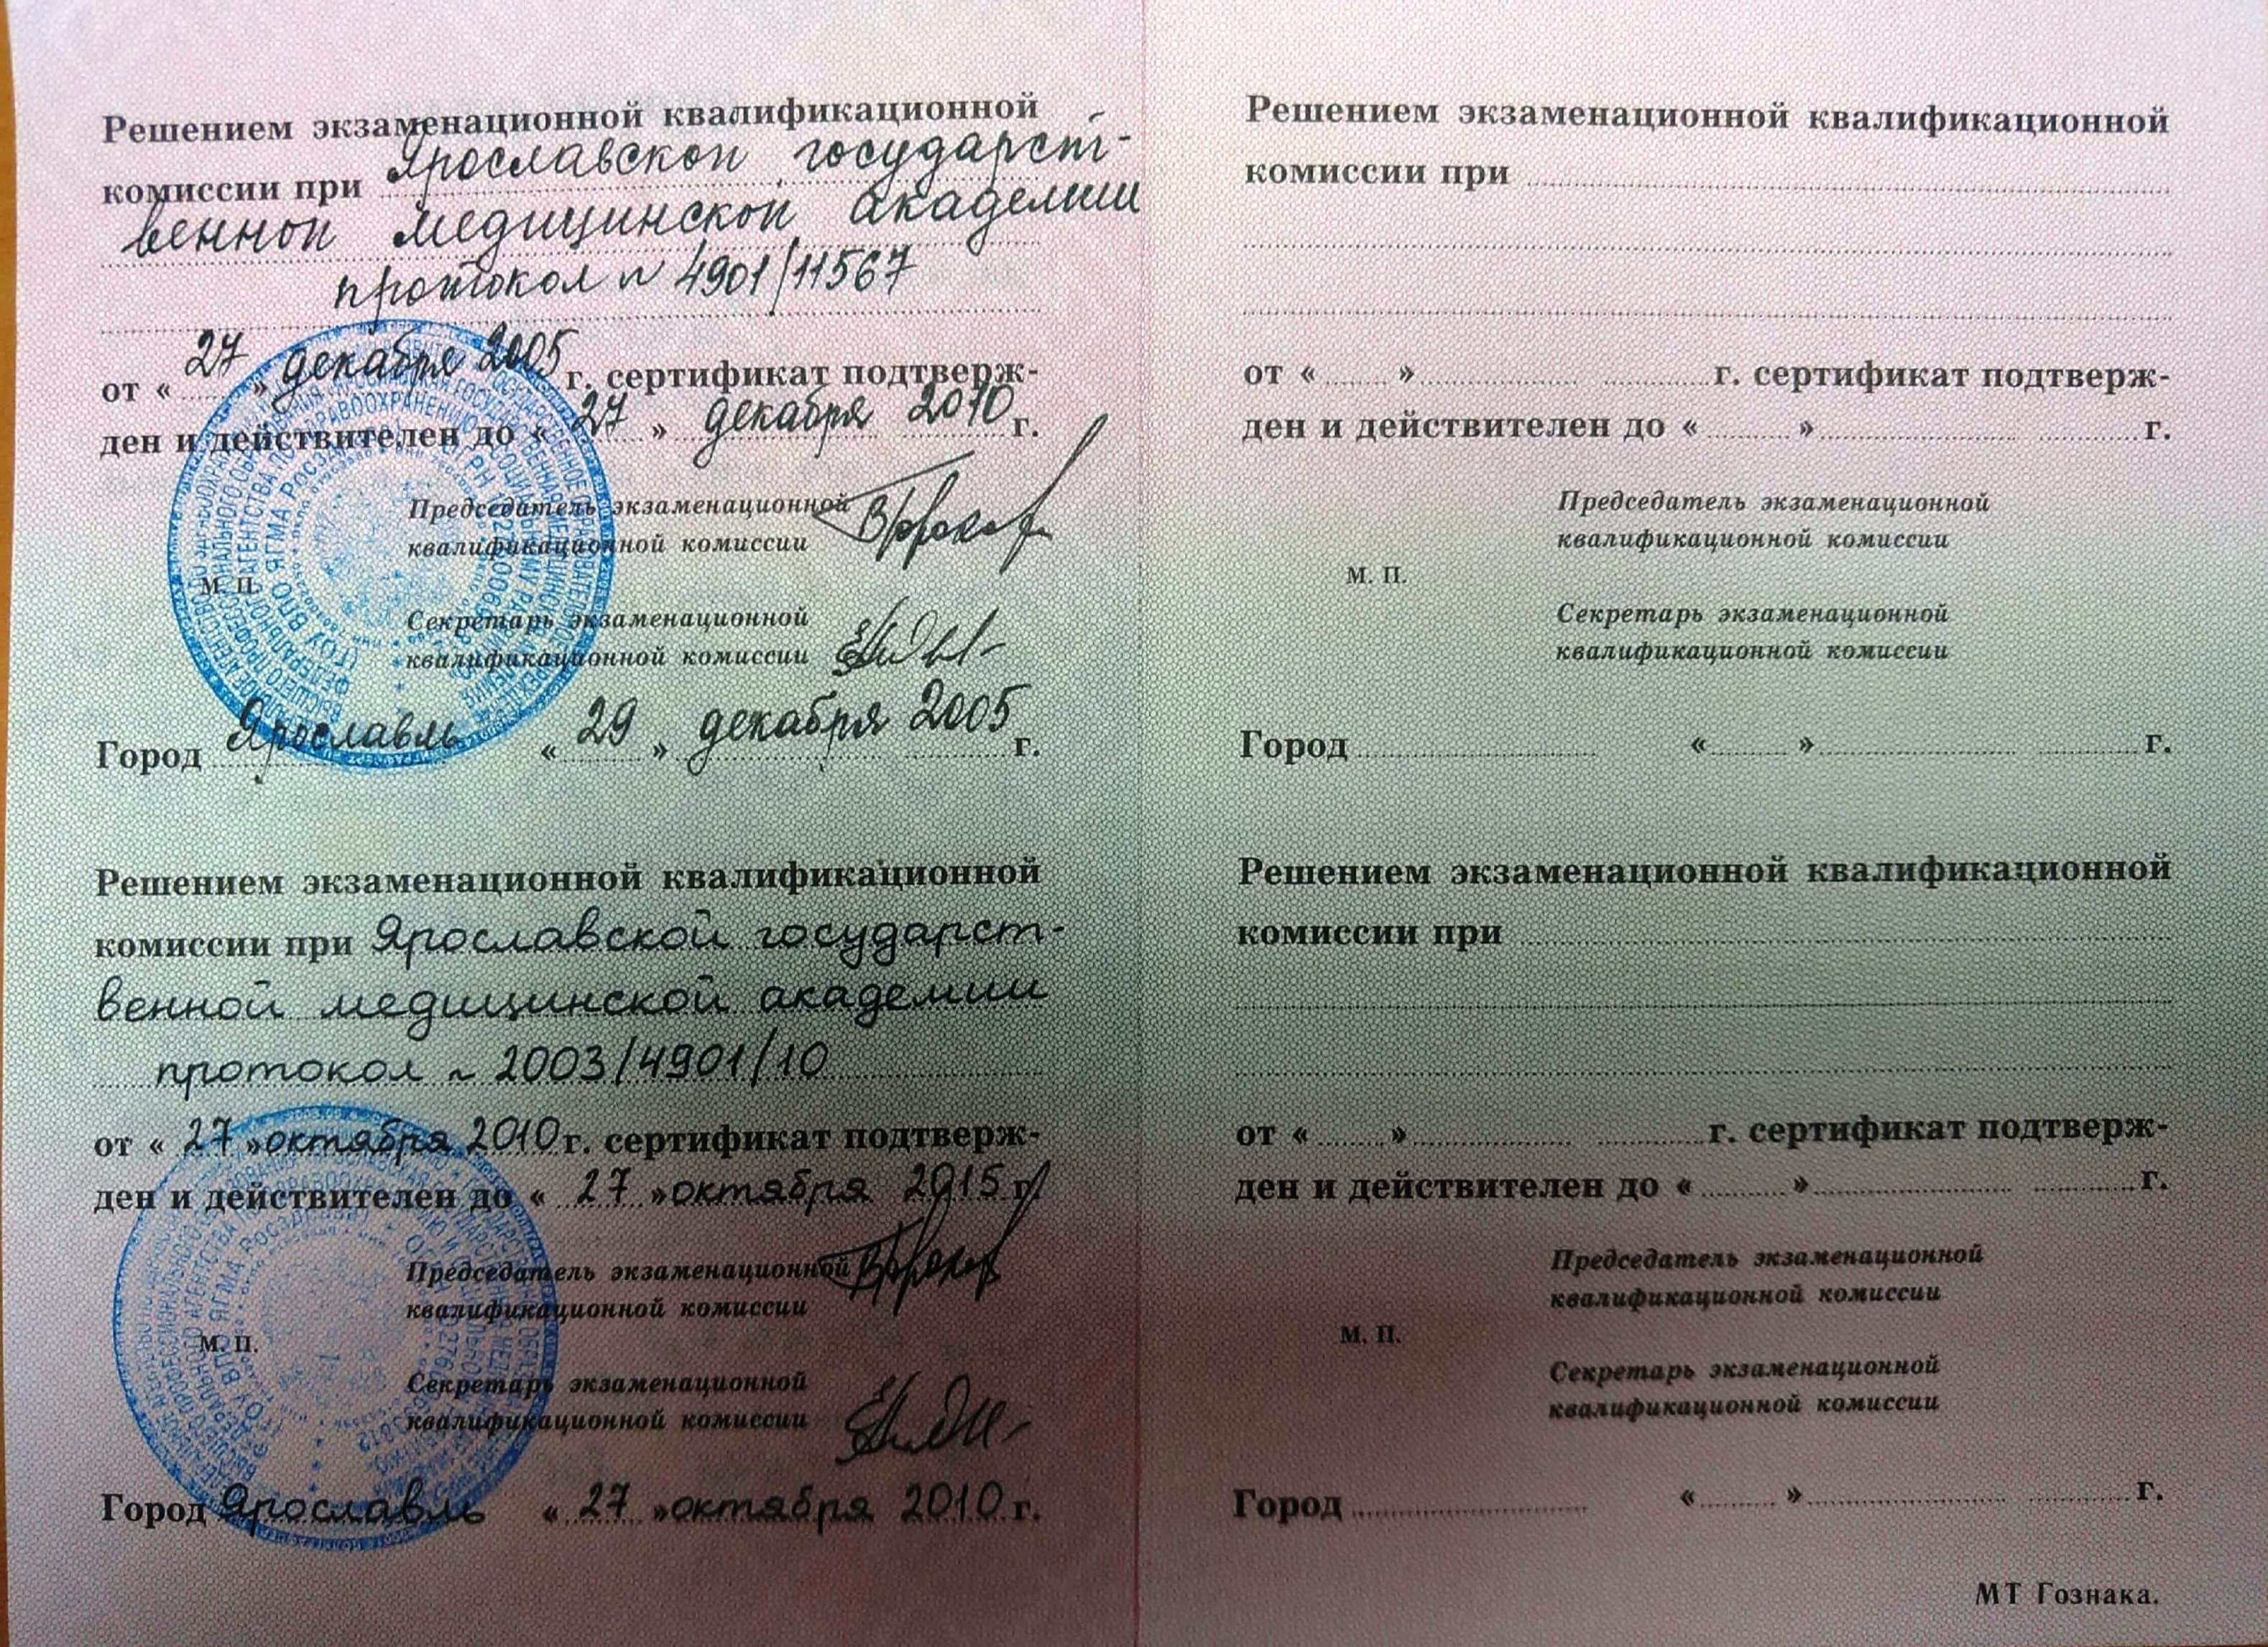 Решением экзаменационной квалификационной
комиссии при Ярославской государст-
венной медицинской академии
протокол № 4901/11567
от « 27 » декабря 2005 г. сертификат подтверж-
ден и действителен до « 27 » декабря 2010 г.
Председатель экзаменационной
квалификационной комиссии
М. П.
Секретарь экзаменационной
квалификационной комиссии
Город Ярославль « 29 » декабря 2005 г.
Решением экзаменационной квалификационной
комиссии при Ярославской государст-
венной медицинской академии
протокол № 2003/4901/10
от « 27 » октября 2010 г. сертификат подтверж-
ден и действителен до « 27 » октября 2015 г.
Председатель экзаменационной
квалификационной комиссии
М. П.
Секретарь экзаменационной
квалификационной комиссии
Город Ярославль « 27 » октября 2010 г.
Решением экзаменационной квалификационной
комиссии при
от « » г. сертификат подтверж-
ден и действителен до « » г.
Председатель экзаменационной
квалификационной комиссии
М. П.
Секретарь экзаменационной
квалификационной комиссии
Город « » г.
Решением экзаменационной квалификационной
комиссии при
от « » г. сертификат подтверж-
ден и действителен до « » г.
Председатель экзаменационной
квалификационной комиссии
М. П.
Секретарь экзаменационной
квалификационной комиссии
Город « » г.
МТ Гознака.